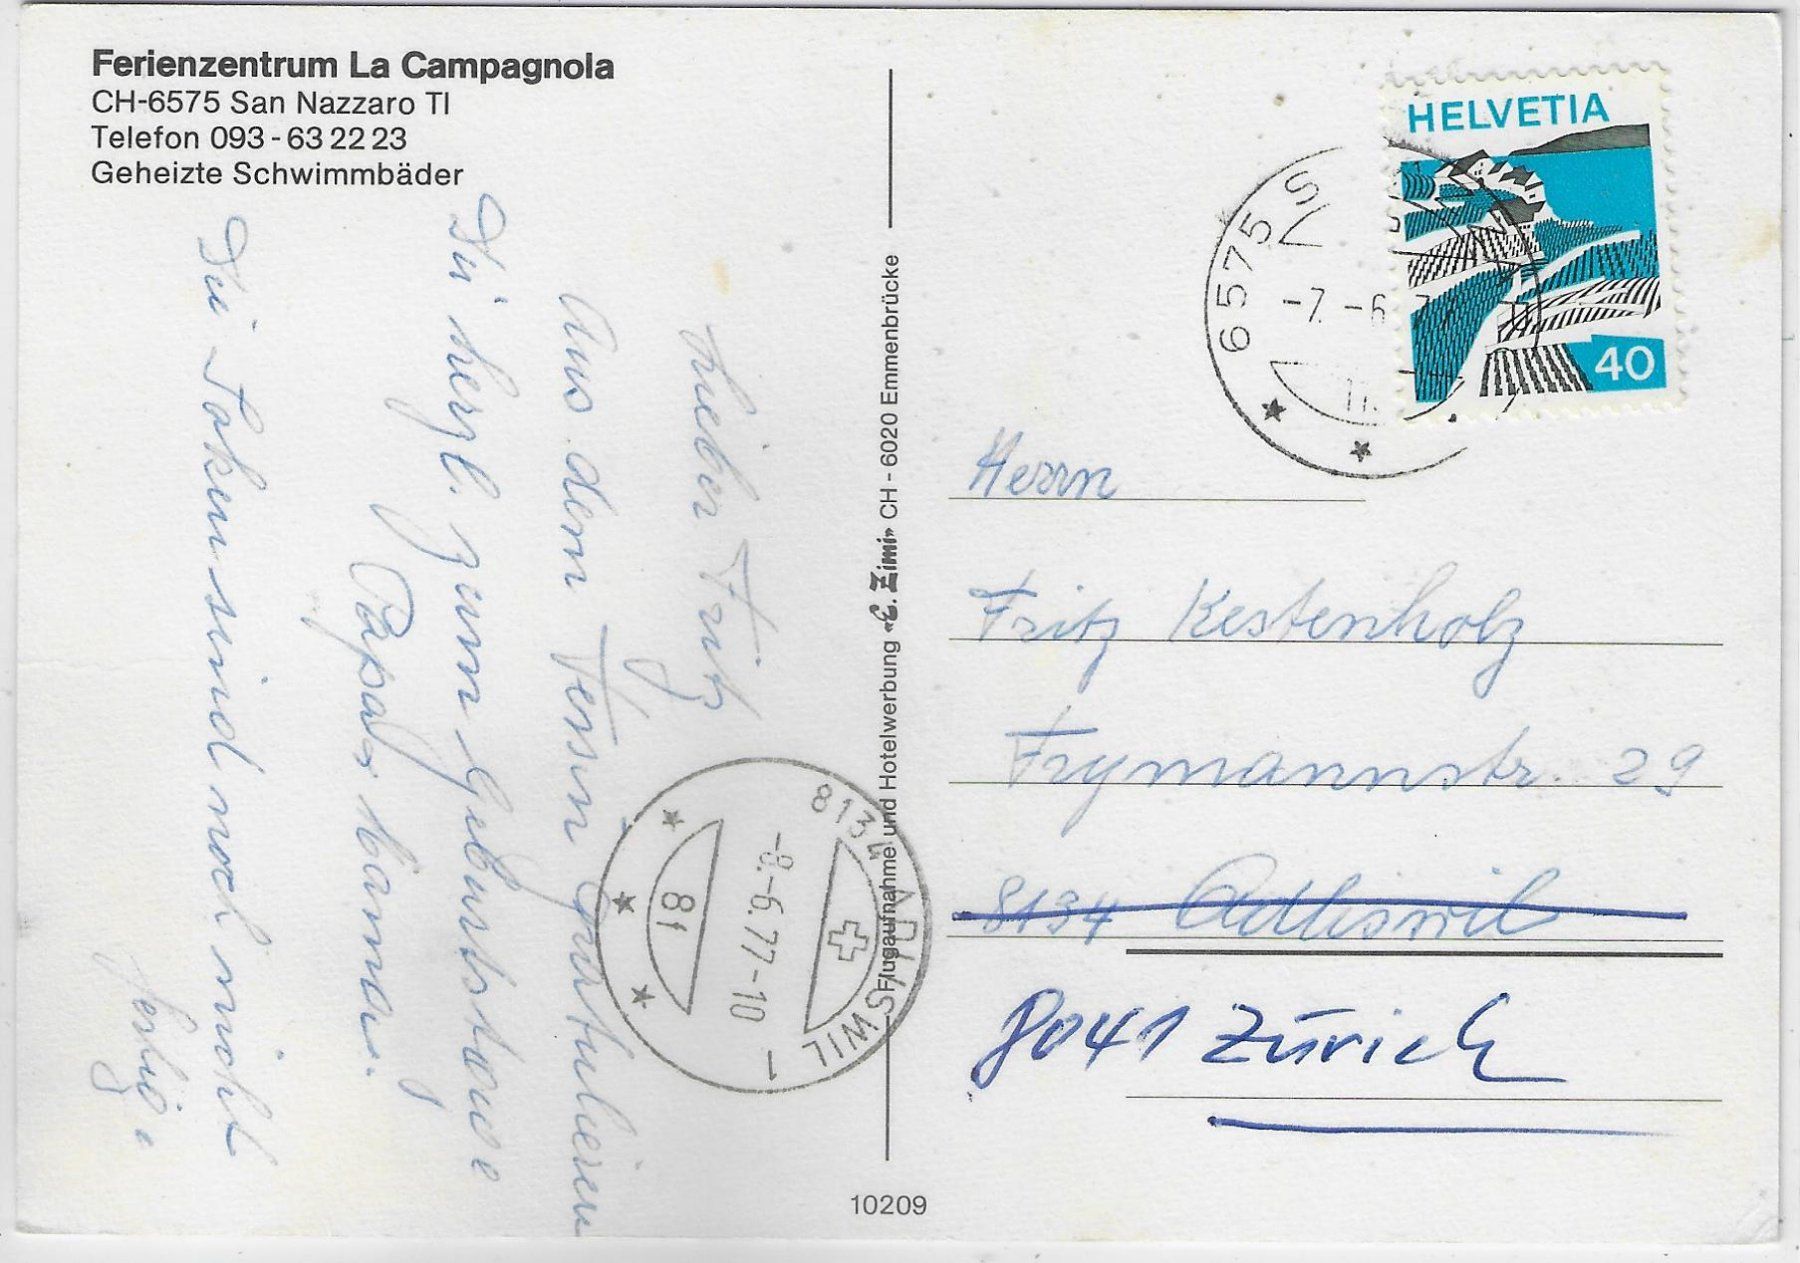 Ferienzentrum La Campagnola
CH-6575 San Nazzaro TI
Telefon 093-63 22 23
Geheizte Schwimmbäder
Lieber Fritz
Aus dem Tessin gratulieren
Dir herzl. zum Geburtstage
Papa Mama.
Die Socken sind noch nicht
fertig.
Flugaufnahme und Hotelwerbung «E. Zimi» CH-6020 Emmenbrücke
10209
HELVETIA
40
6575 S
-7.-6.
11
8134 ADLISWIL 1
-8.-6.77-10
81
Herrn
Fritz Kestenholz
Frymannstr. 29
8134 Adliswil
8041 Zürich